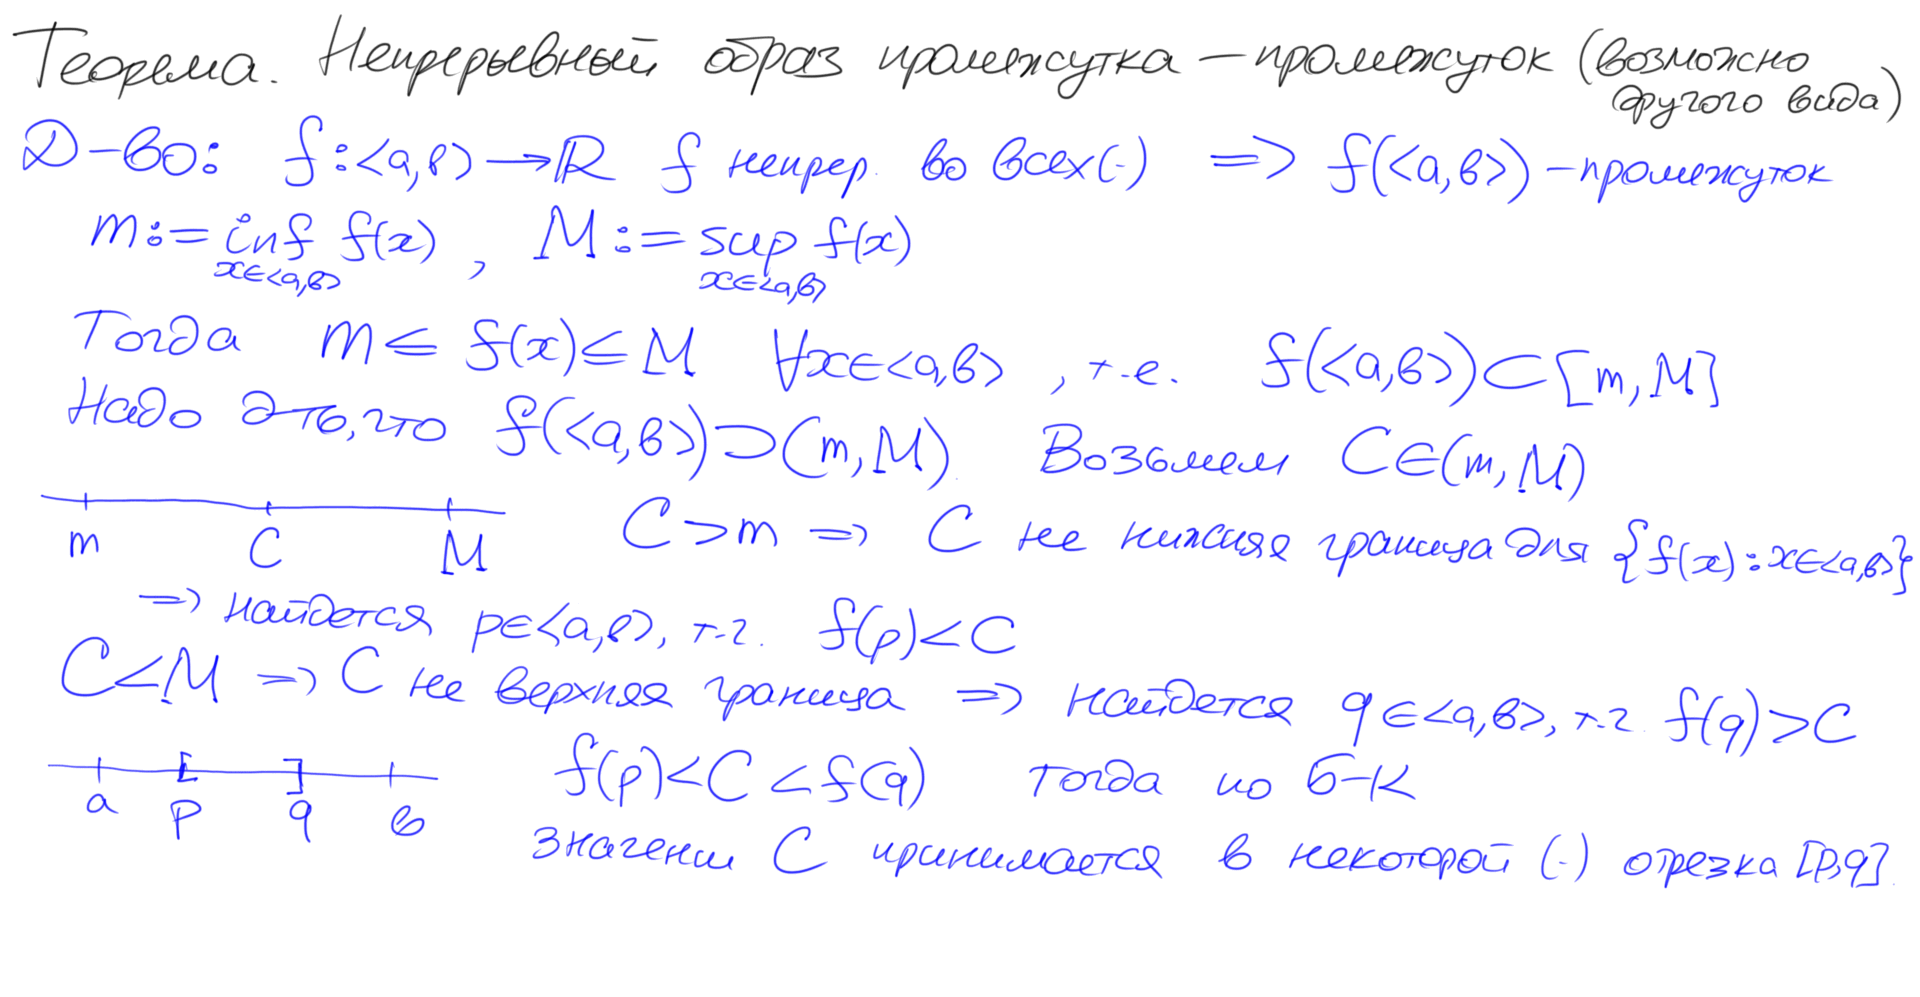 Теорема. Непрерывный образ промежутка – промежуток (возможно
другого вида)
Д-во: f:<a,b> → ℝ f непрер. во всех (·) => f(<a,b>) – промежуток
m := inf f(x) , M := sup f(x)
x∈<a,b> x∈<a,b>
Тогда m ≤ f(x) ≤ M ∀x∈<a,b> , т.е. f(<a,b>) ⊂ [m,M]
Надо д-ть, что f(<a,b>) ⊃ (m,M). Возьмем C∈(m,M)
m C M
C > m => C не нижняя граница для {f(x) : x∈<a,b>}
=> найдется p∈<a,b>, т.ч. f(p) < C
C < M => C не верхняя граница => найдется q∈<a,b>, т.ч. f(q) > C
a p q b
f(p) < C < f(q) тогда по Б-К
значении C принимается в некоторой (·) отрезка [p,q].